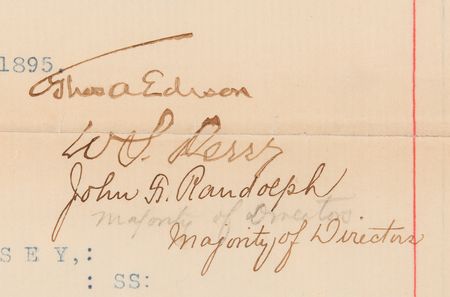 1895.
Thos A Edison
W. S. Perry
John F. Randolph
Majority of Directors.
Majority of Directors
SEY,:
: SS: